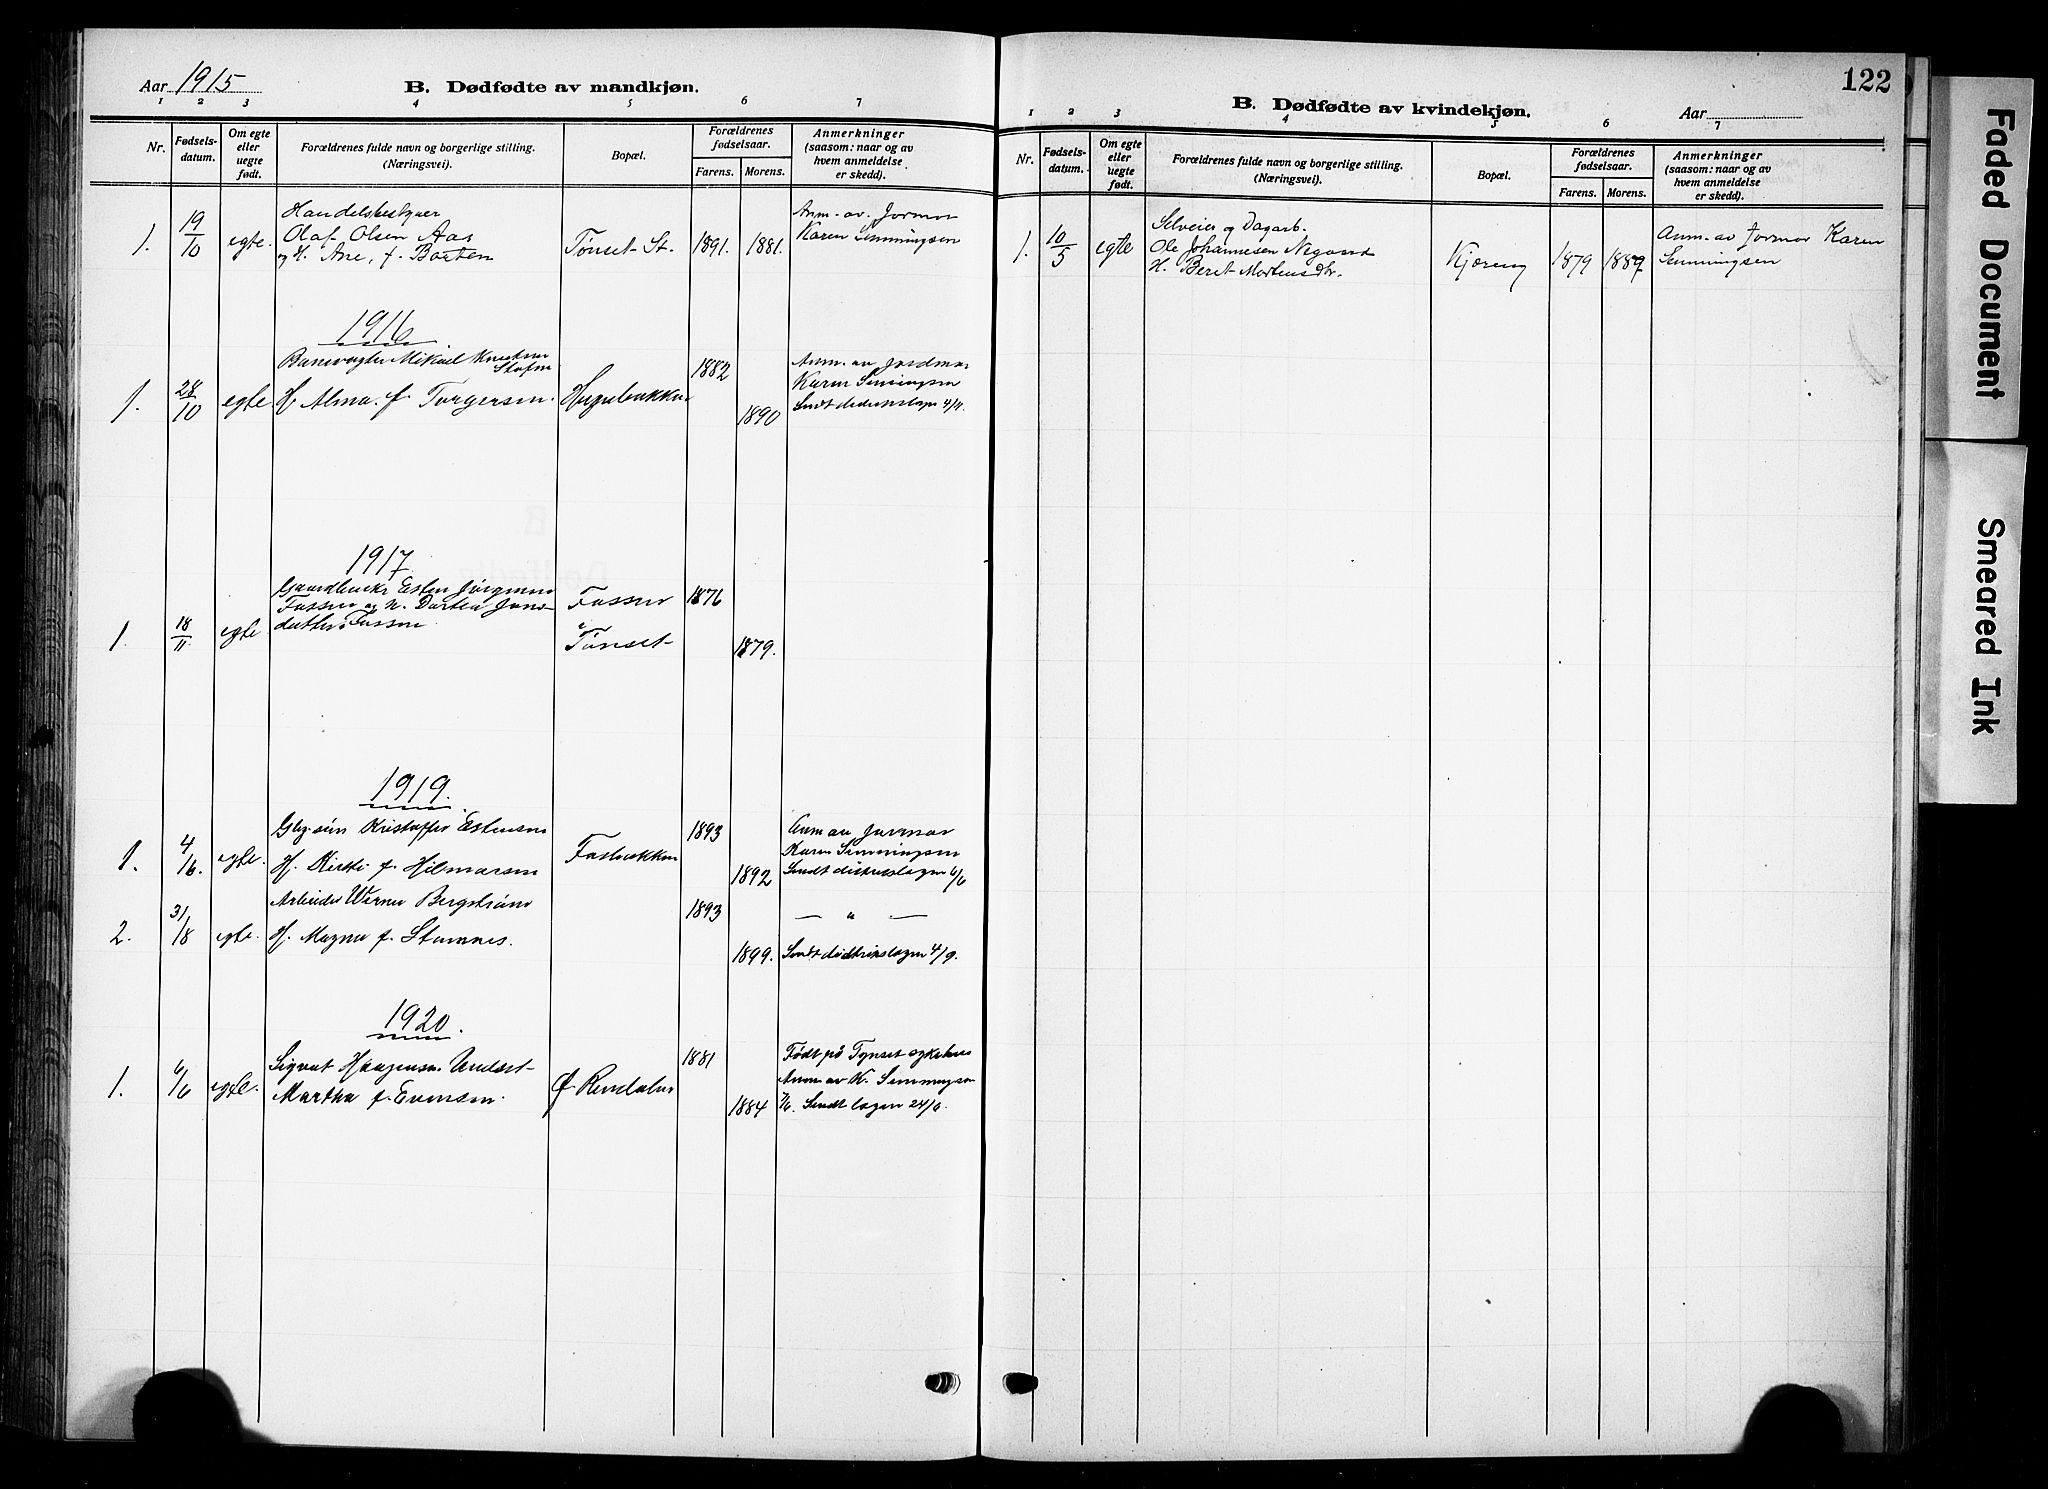 Aar 1915
B. Dødfødte av mandkjøn.
1 2 3 4 5 6 7
Nr.
Fødsels-
datum.
Om egte
eller
uegte
født.
Forældrenes fulde navn og borgerlige stilling.
(Næringsvei).
Bopæl.
Forældrenes
fødselsaar.
Farens. Morens.
Anmerkninger
(saasom: naar og av
hvem anmeldelse
er skedd).
1. 19/10 egte.
Handelsbestyrer
Olaf Olsen Aas
og H. Ane, f. Borten
Tønset St. 1891. 1881.
Anm. av. Jormor
Karen Semmingsen
1916
Banevogter Mikael Knudsen
1. 28/10 egte H Alma f. Torgersen.
1882
1890
Anm. av Jordmor
Karen Semmingsen
Sendt 4/11.
1917
Gaardbruker Esten Jørgensen
Fossen og H. Dortea Jons-
datter Fossen
1. 18/11 egte
Fossen
Tønset
1876
1879.
1919.
Kristoffer Estensen
1. 4/6. egte. H. Kirsti f. Hilmarsen
Fasbakken
1893
1892
Anm av Jormor
Karen Semmingsen
Sendt distriktslægen 6/6
Arbeider Werner Bergstrøm
2. 31/8 egte. H. Magna f. Stamnes.
1893
1899.
— " —
Sendt distriktslægen 4/9.
1920.
Sigvat Haagensen Undset
1. 6/6 egte. Martha f. Evensen.
Ø Rendalen
1881
1884
Født på Tynset sykehus
Anm av K. Semmingsen
7/6. Sendt lægen 24/6.
122
B. Dødfødte av kvindekjøn.
Aar
1 2 3 4 5 6 7
Nr.
Fødsels-
datum.
Om egte
eller
uegte
født.
Forældrenes fulde navn og borgerlige stilling.
(Næringsvei).
Bopæl.
Forældrenes
fødselsaar.
Farens. Morens.
Anmerkninger
(saasom: naar og av
hvem anmeldelse
er skedd).
1. 10/5 egte
Selveier og Dagarb.
Ole Johannesen Nygaard
H. Beret Mortensdtr.
1879 1887
Anm. av Jormor Karen
Semmingsen
Faded Document
Smeared Ink